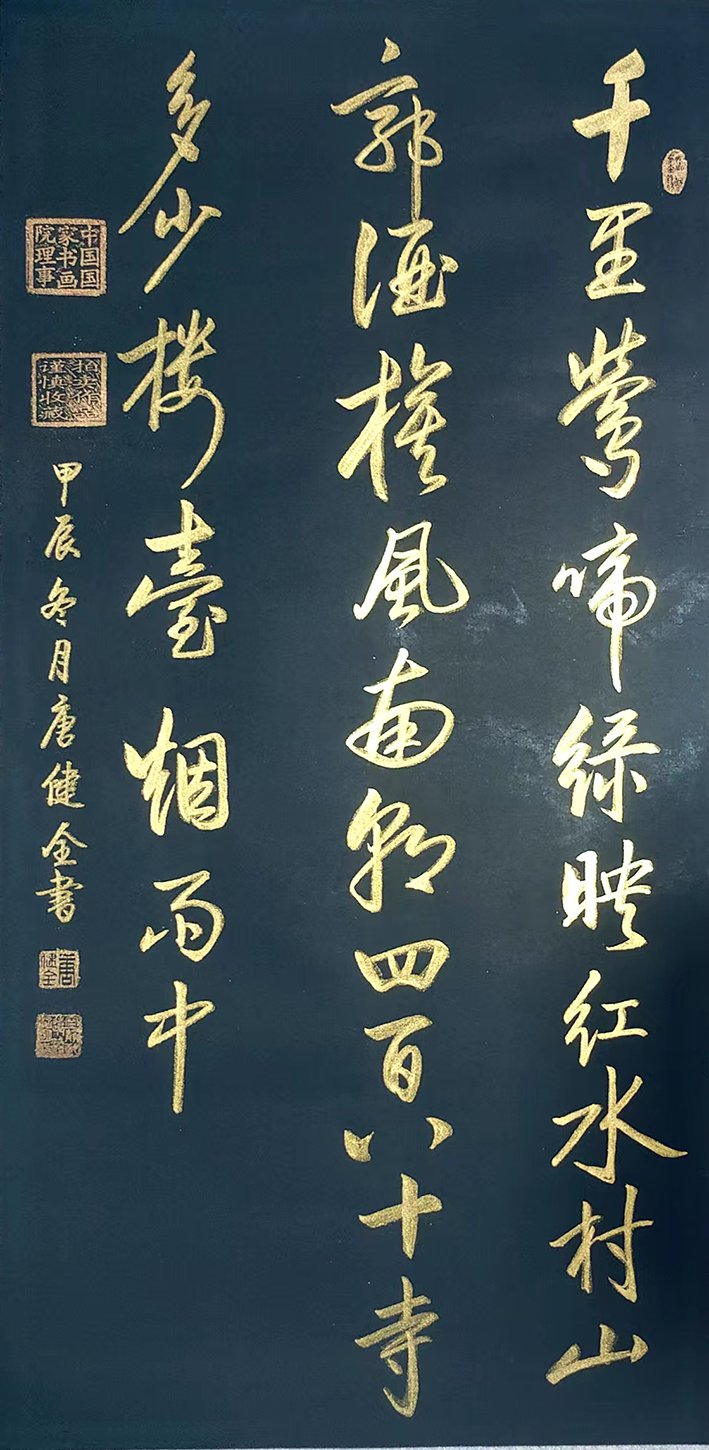 千里莺啼绿映红水村山
郭酒旗風南朝四百八十寺
多少楼臺烟雨中
甲辰冬月唐健全书
中国国家书画院理事
谨慎收藏
唐健全